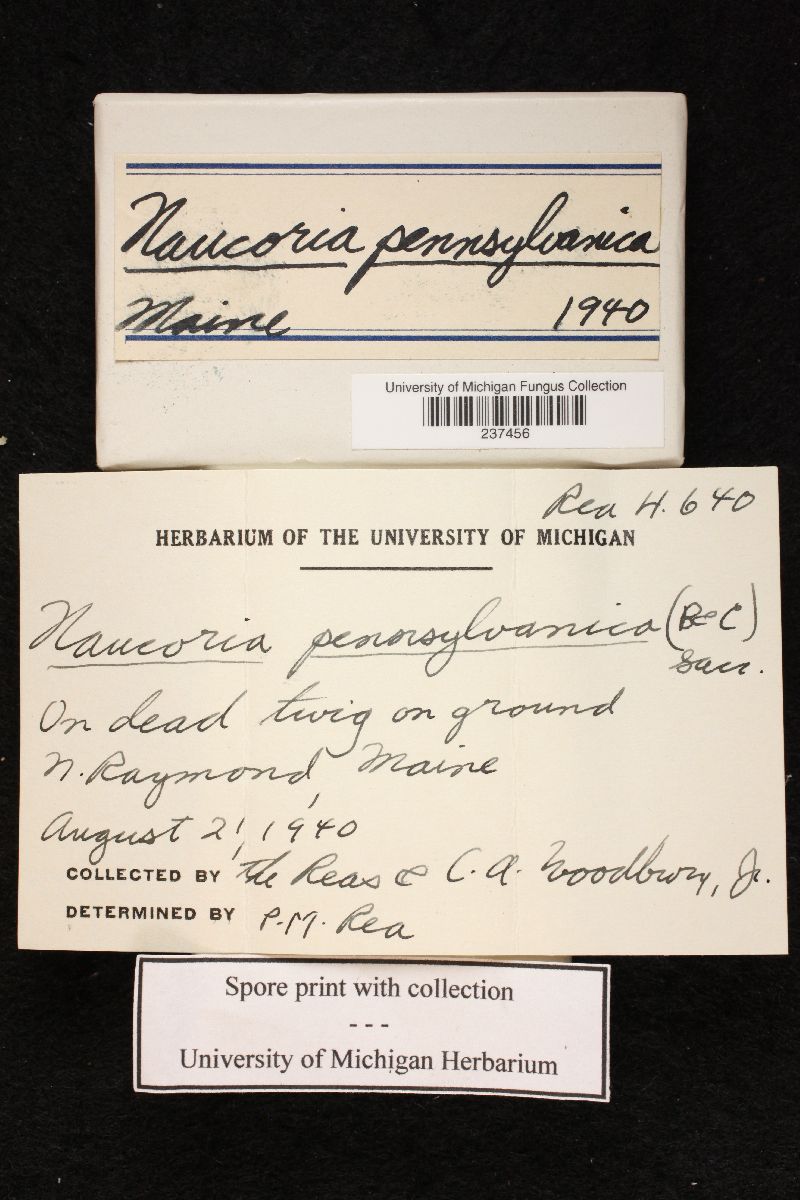 Naucoria pennsylvanica
Maine 1940
University of Michigan Fungus Collection
237456
Rea H. 640
HERBARIUM OF THE UNIVERSITY OF MICHIGAN
Naucoria pennsylvanica (B & C)
Sacc.
On dead twig on ground
N. Raymond, Maine
August 21, 1940
COLLECTED BY the Reas & C. A. Woodbury, Jr.
DETERMINED BY P. M. Rea
Spore print with collection
- - -
University of Michigan Herbarium